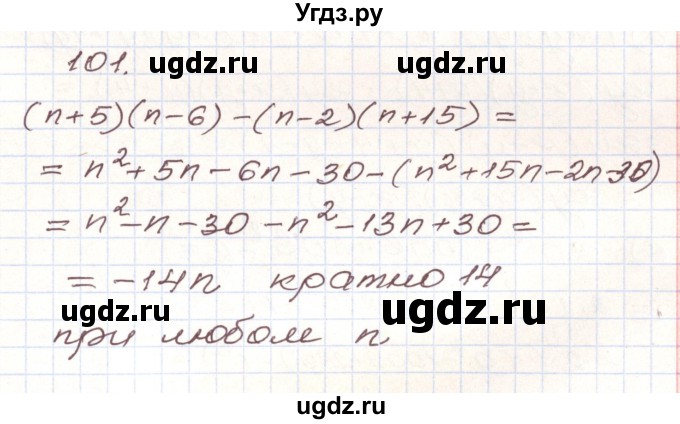 Угдз.ру
101.
ugdz.ru ugdz.ru
(n+5)(n-6)-(n-2)(n+15)=
= n²+5n-6n-30-(n²+15n-2n-30)
= n²-n-30-n²-13n+30=
= -14n кратно 14
ugdz.ru ugdz.ru
при любом n.
ugdz.ru